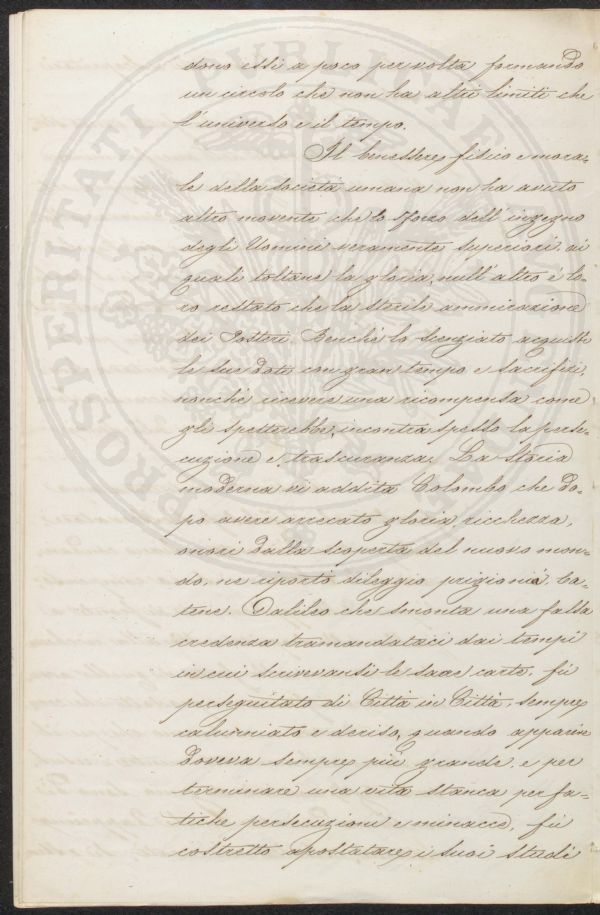 dono essi a poco per volta formando
un circolo che non ha altri limiti che
l'universo e il tempo.
Il benessere fisico e mora-
le della società umana non ha avuto
altro movente che lo sforzo dell'ingegno
degli Uomini veramente superiori ai
quali toltane la gloria, null'altro è lo-
ro restato che la sterile ammirazione
dei Posteri. Benchè lo Scenziato acquisti
le sue doti con gran tempo e sacrifizi,
nonchè ricevere una ricompensa come
gli spetterebbe, incontra spesso la perse-
cuzione e trascuranza. La Storia
moderna vi addita Colombo che do-
po avere arrecato gloria, ricchezza,
onori dalla scoperta del nuovo mon-
do, ne riportò dileggio prigionia Ca-
tene. Galileo che smonta una falsa
credenza tramandataci dai tempi
in cui scrivevansi le sacre carte, fù
perseguitato di Città in Città, sempre
calunniato e deriso, quando apparire
doveva sempre più grande, e per
terminare una vita stanca per fa-
tiche persecuzioni e minacce, fù
costretto apostatare i suoi studi
PROSPERITATI PUBLICAE